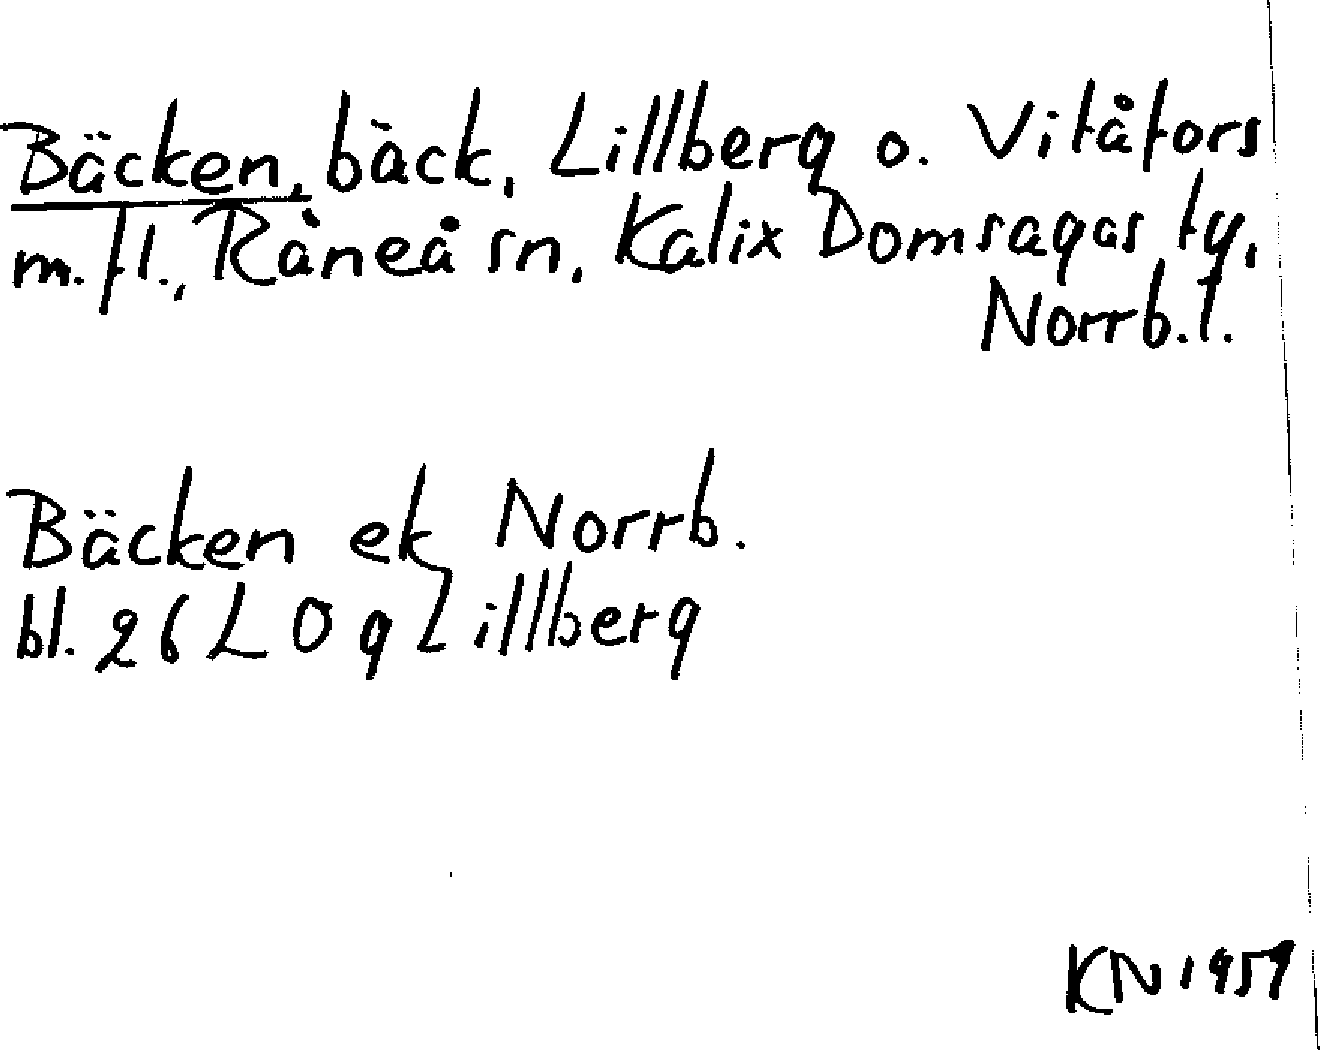 Bäcken, bäck, Lillberg o. Vitåfors
m.fl., Råneå sn, Kalix Domsagas tg,
Norrb.l.
Bäcken ek Norrb.
bl. 26 L 0 g Lillberg
KN 1959